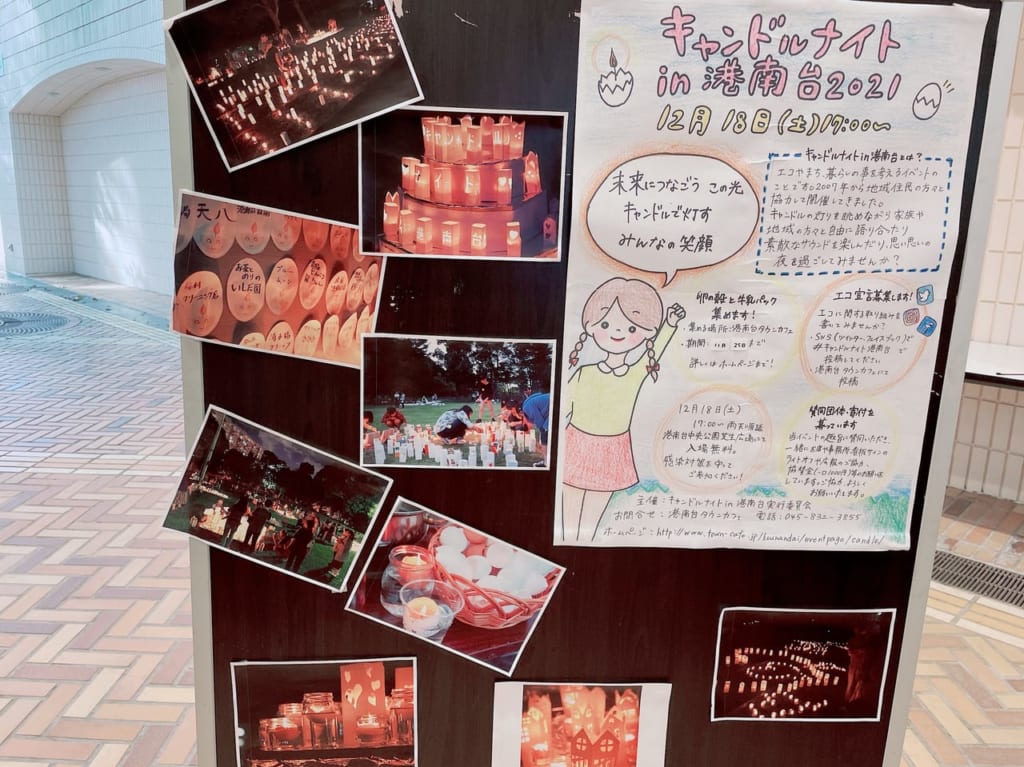 キャンドルナイト
in 港南台2021
12月18日(土)17:00~
未来につなごう この光
キャンドルで灯す
みんなの笑顔
キャンドルナイトin港南台とは?
エコやまち、暮らしの事を考えるイベントの
ことです。2007年から地域住民の方々と
協力して開催してきました。
キャンドルの灯りを眺めながら家族や
地域の方々と自由に語り合ったり
素敵なサウンドを楽しんだり、思い思いの
夜を過ごしてみませんか?
卵の殻と牛乳パック
集めます!
・集める場所:港南台タウンカフェ
・期間: 11月 25日まで
詳しくはホームページまで!
エコ宣言募集します!
エコに関する取り組みを
書いてみませんか?
・SNS(ツイッター、フェイスブック)で
#キャンドルナイト港南台 で
投稿してください
・港南台タウンカフェにて
投稿
12月18日(土)
17:00~ 雨天順延
港南台中央公園芝生広場にて
入場無料。
感染対策を守って
ご参加ください!
賛同団体・寄付を
募っています
当イベントの趣旨に賛同いただき、
一緒にお店や事務所、看板サインの
ライトオフや広報のご協力、
協賛金(一口1000円)等のお願いを
しています。ご協力、よろしく
お願いいたします。
主催:キャンドルナイト in 港南台実行委員会
お問合せ:港南台タウンカフェ 電話:045-832-3855
ホームページ:http://www.town-cafe.jp/kounandai/eventpage/candle/
キャンドル
ナイト
港南台
天八
お茶と
のりの
いしだ園
クリーニング店